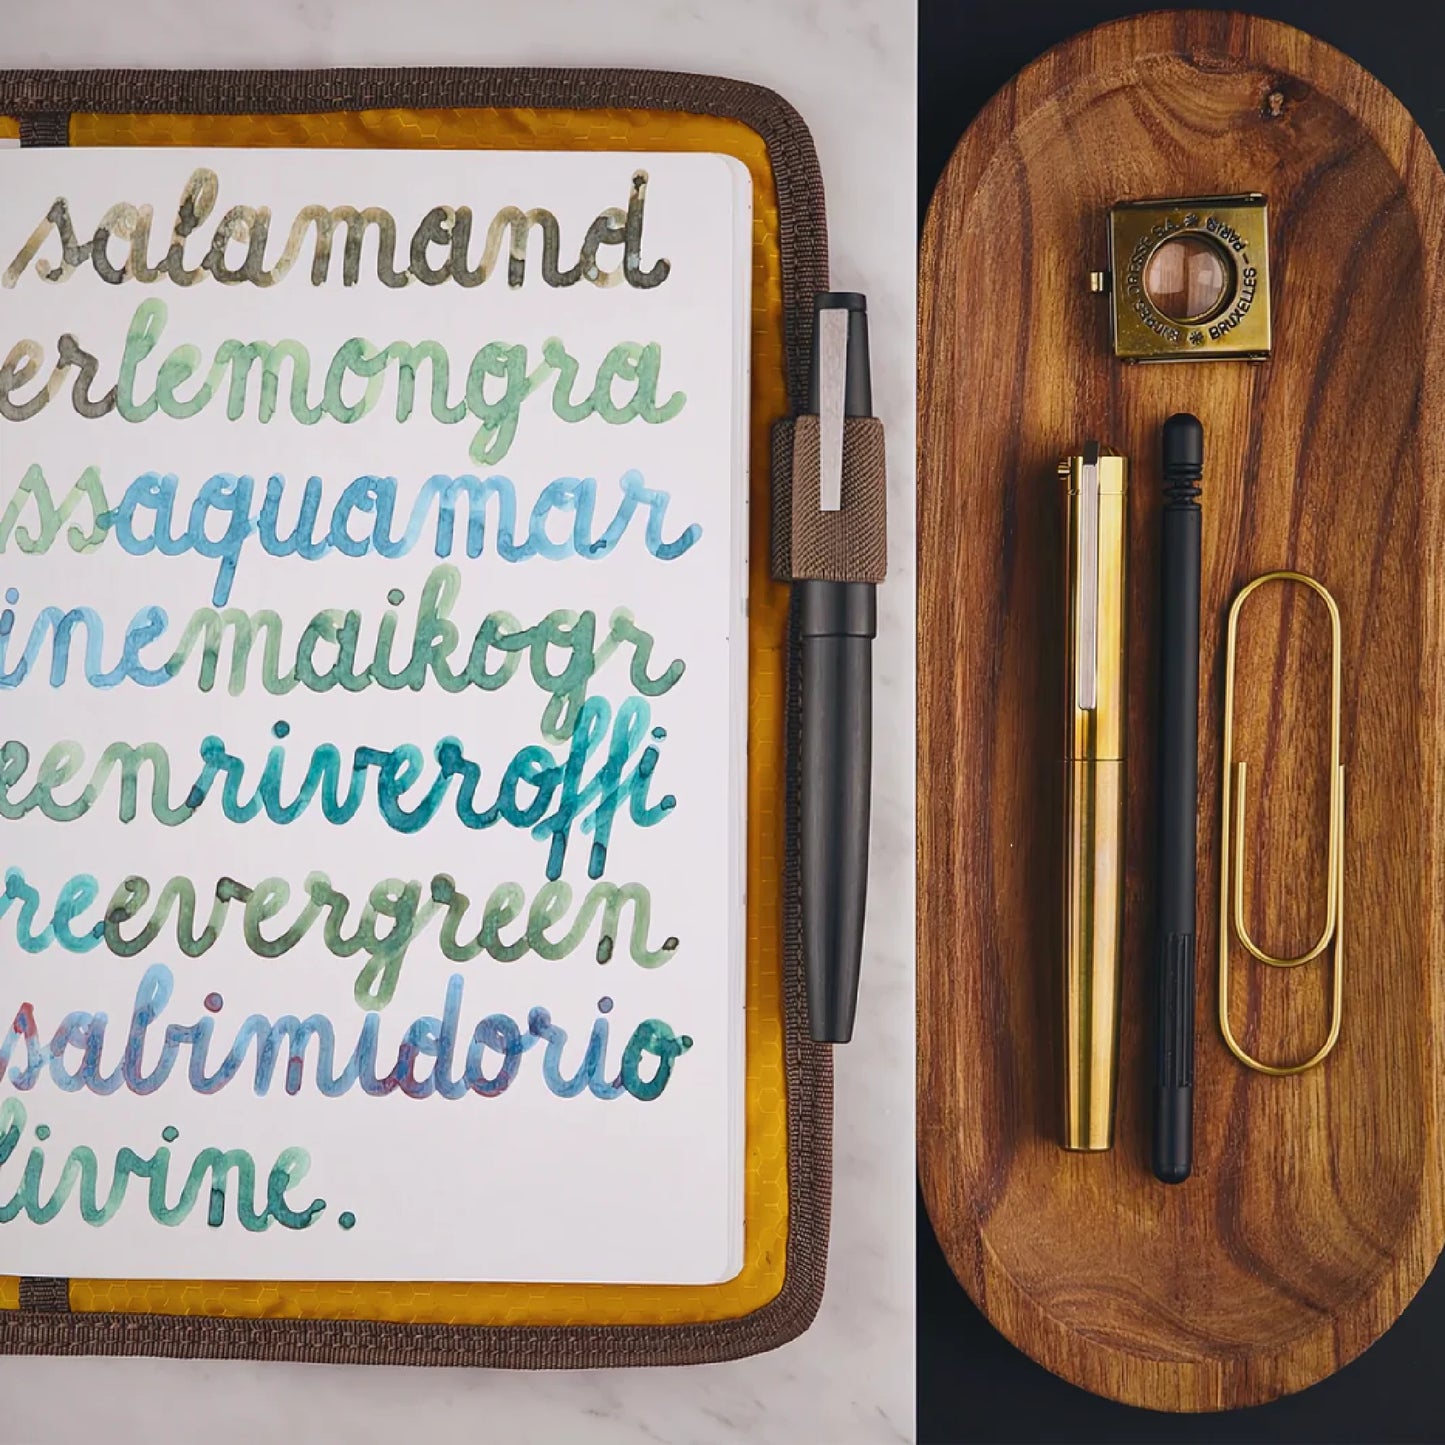 salamand
erlemongra
ssaquamar
inemaikogr
eenriveroffi
reevergreen
sabimidorio
livine.
BIJOURS DRESSE SA. * PARIS - BRUXELLES *